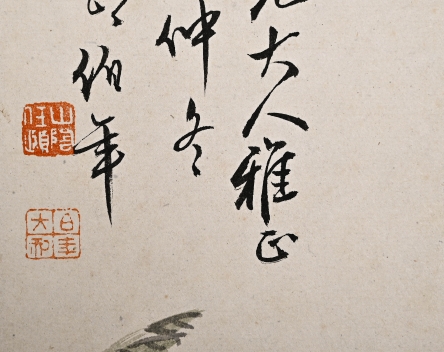 大人雅正
仲冬
伯年
山陰任頤